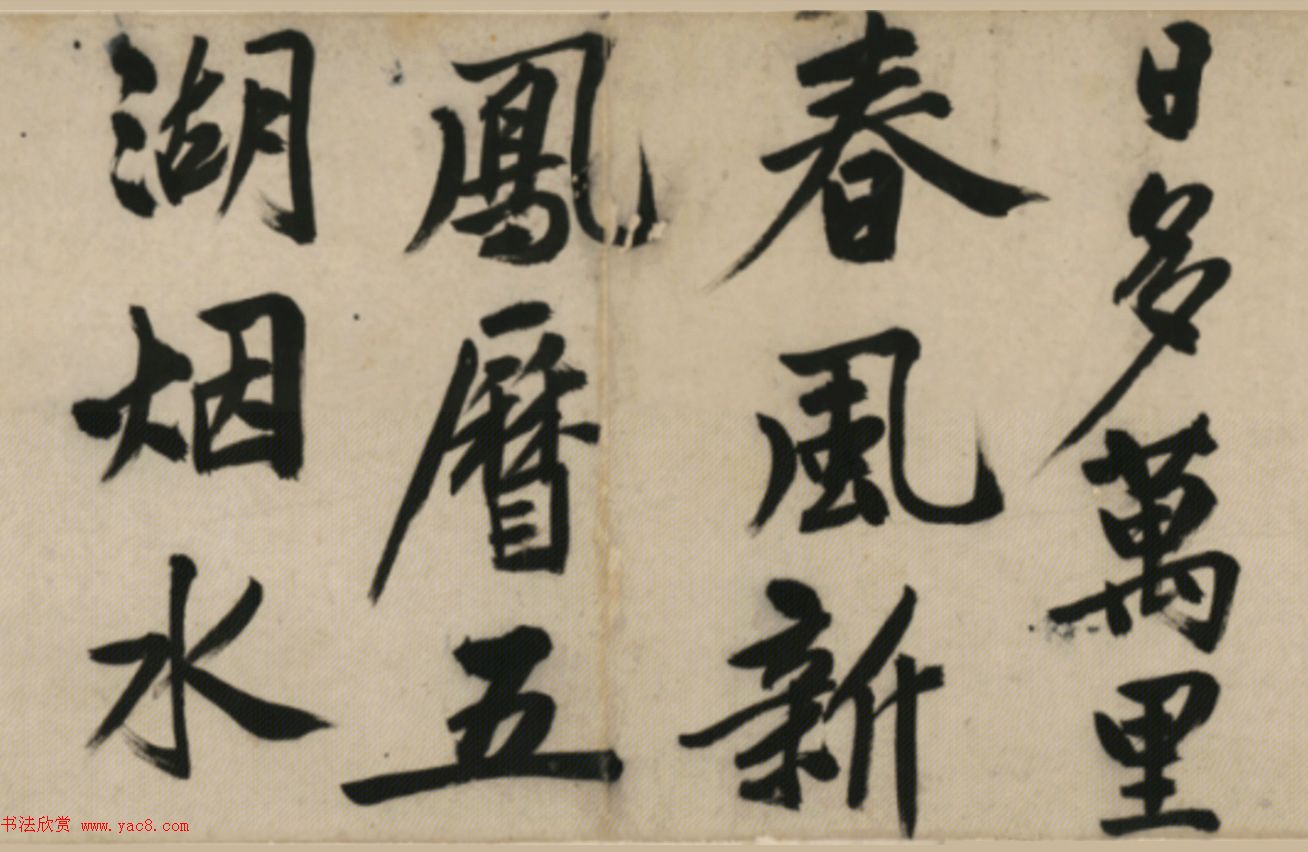 日多萬里
春風新
鳳曆五
湖烟水
书法欣赏 www.yac8.com